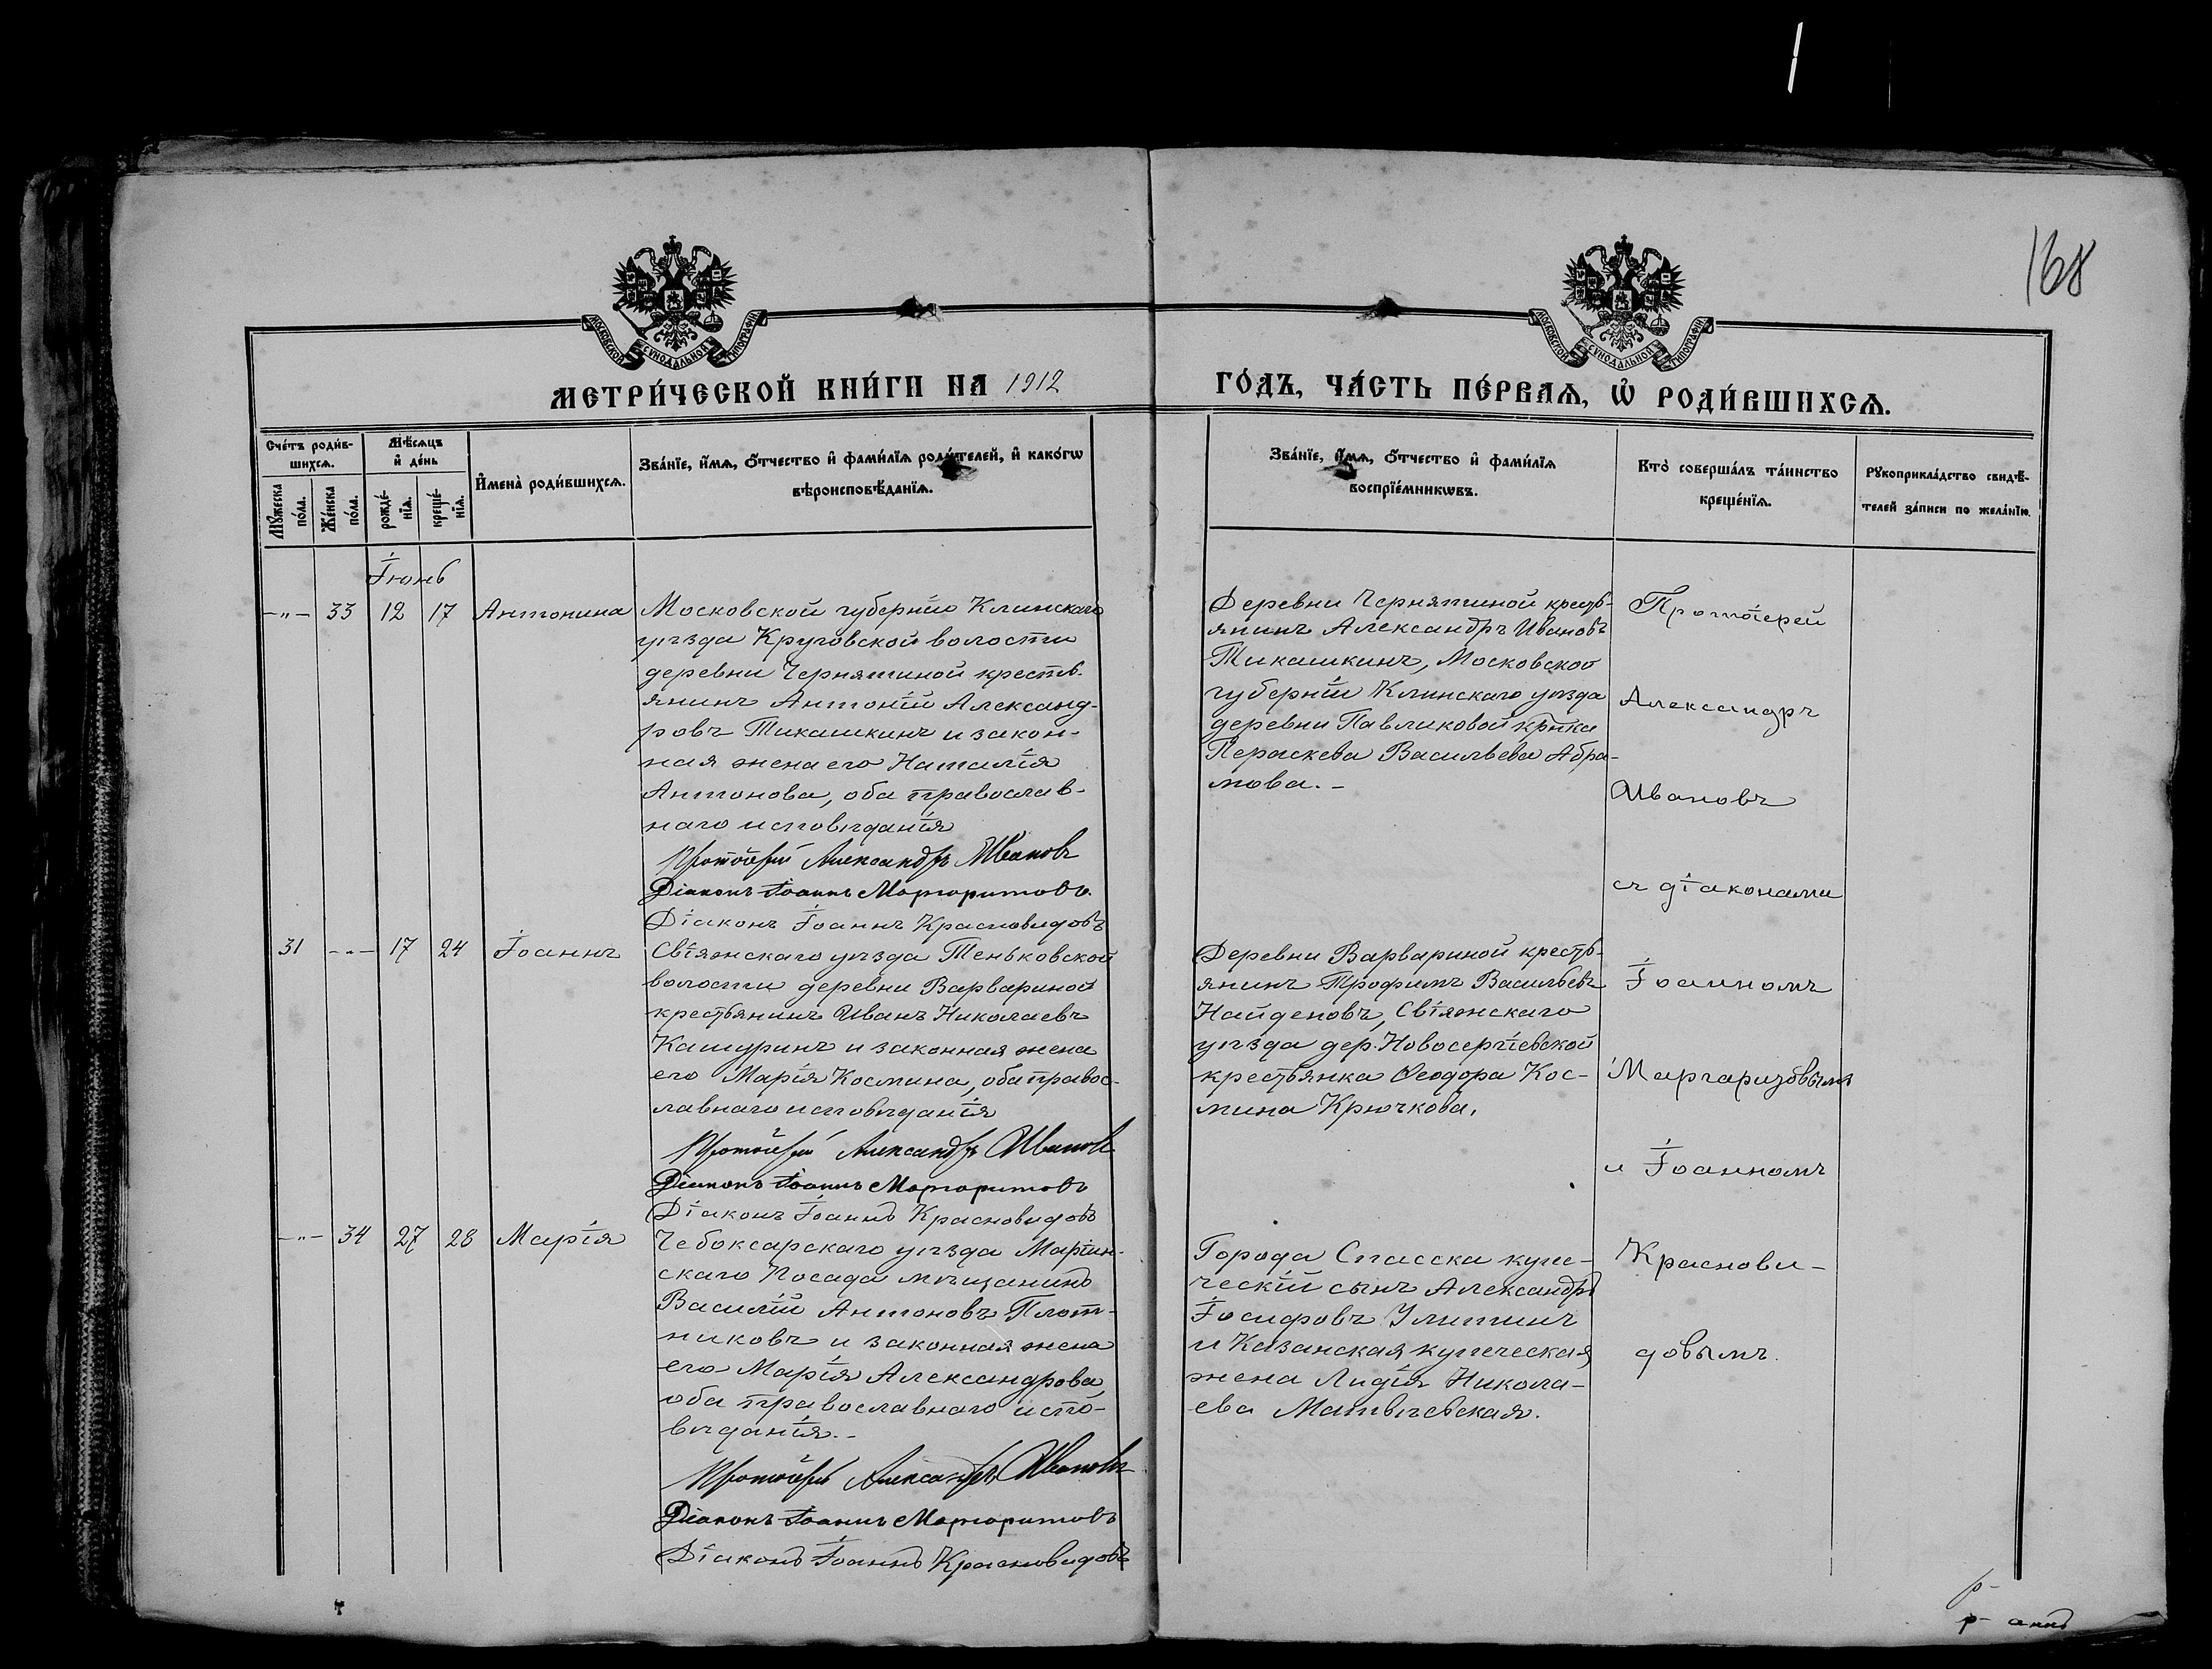 168
МОСКОВСКОЙ СѴНОДАЛЬНОЙ ТИПОГРАФІИ
МОСКОВСКОЙ СѴНОДАЛЬНОЙ ТИПОГРАФІИ
МЕТРИ́ЧЕСКОЙ КНИ́ГИ НА 1912 ГО́ДЪ, ЧА́СТЬ ПЕ́РВАѦ, Ѡ҆ РОДИ́ВШИХСѦ.
Сче́тъ роди́в-
шихсѧ.
Мѣ́сяцъ
и҆ де́нь
Мꙋ́жеска
по́ла.
Же́нска
по́ла.
рожде́-
нїѧ.
креще́-
нїѧ.
И҆мена̀ роди́вшихсѧ.
Зва́нїе, и҆́мѧ, ѻ҆́тчество и҆ фами́лїѧ роди́телей, и҆ како́гѡ
вѣроисповѣ́данїѧ.
Зва́нїе, и҆́мѧ, ѻ҆́тчество и҆ фами́лїѧ
воспрїе́мникѡвъ.
Кто̀ соверша́лъ та́инство
креще́нїѧ.
Рꙋкоприкла́дство свидѣ́-
телей за́писи по жела́нїю.
Іюнь
-"- 33 12 17 Антонина
Московской губерніи Клинскаго
уѣзда Круговской волости
деревни Чернятиной кресть-
янинъ Антоній Александ-
ровъ Тикашкинъ и закон-
ная жена его Наталія
Антонова, оба православ-
наго исповѣданія
Протоіерей Александръ Ивановъ
Діаконъ Іоаннъ Маргаритовъ.
Діаконъ Іоаннъ Красновидовъ
Деревни Чернятиной кресть-
янинъ Александръ Ивановъ
Тикашкинъ, Московской
губерніи Клинскаго уѣзда
деревни Павликовой кр̃нка
Пераскева Васильева Абра-
мова.-
31 -"- 17 24 Іоаннъ
Свіяжскаго уѣзда Теньковской
волости деревни Варвариной
крестьянинъ Иванъ Николаевъ
Кашуринъ и законная жена
его Марія Космина, оба правос-
лавнаго исповѣданія
Протоіерей Александръ Ивановъ
Діаконъ Іоаннъ Маргаритовъ
Діаконъ Іоаннъ Красновидовъ
Деревни Варвариной кресть-
янинъ Трофимъ Васильевъ
Найденовъ, Свіяжскаго
уѣзда дер. Новосергіевской
крестьянка Ѳеодора Кос-
мина Крючкова.
-"- 34 27 28 Марія
Чебоксарскаго уѣзда Маріин-
скаго Посада мѣщанинъ
Василій Антоновъ Плот-
никовъ и законная жена
его Марія Александрова,
оба православнаго испо-
вѣданія.-
Протоіерей Александръ Ивановъ
Діаконъ Іоаннъ Маргаритовъ
Діаконъ Іоаннъ Красновидовъ
Города Спасска купе-
ческій сынъ Александръ
Іосифовъ
и Казанская купеческая
жена Лидія Никола-
ева Матвѣевская.
Протоіерей
Александръ
Ивановъ
съ діаконами
Іоанномъ
Маргаритовымъ
и Іоанномъ
Краснови-
довымъ.